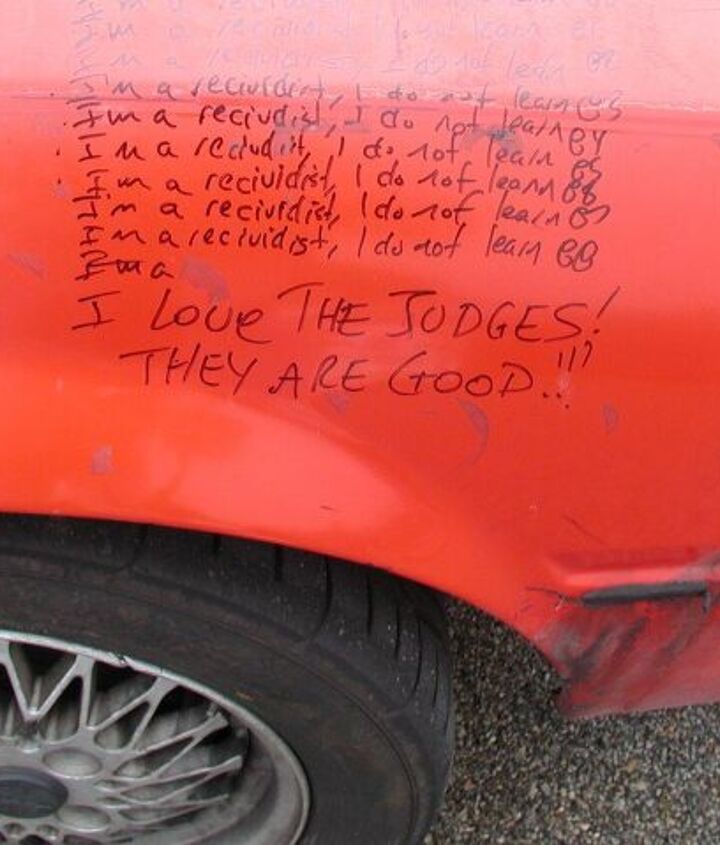 I'm a recividist, I do not learn
I'm a recividist, I do not learn 82
I'm a recividist, I do not learn 83
I'm a recividist, I do not learn 84
I'm a recividist, I do not learn 85
I'm a recividist, I do not learn 86
I'm a recividist, I do not learn 87
I'm a recividist, I do not learn 88
I'm a
I LOVe THE JUDGES!
THEY ARE GOOD..!!!